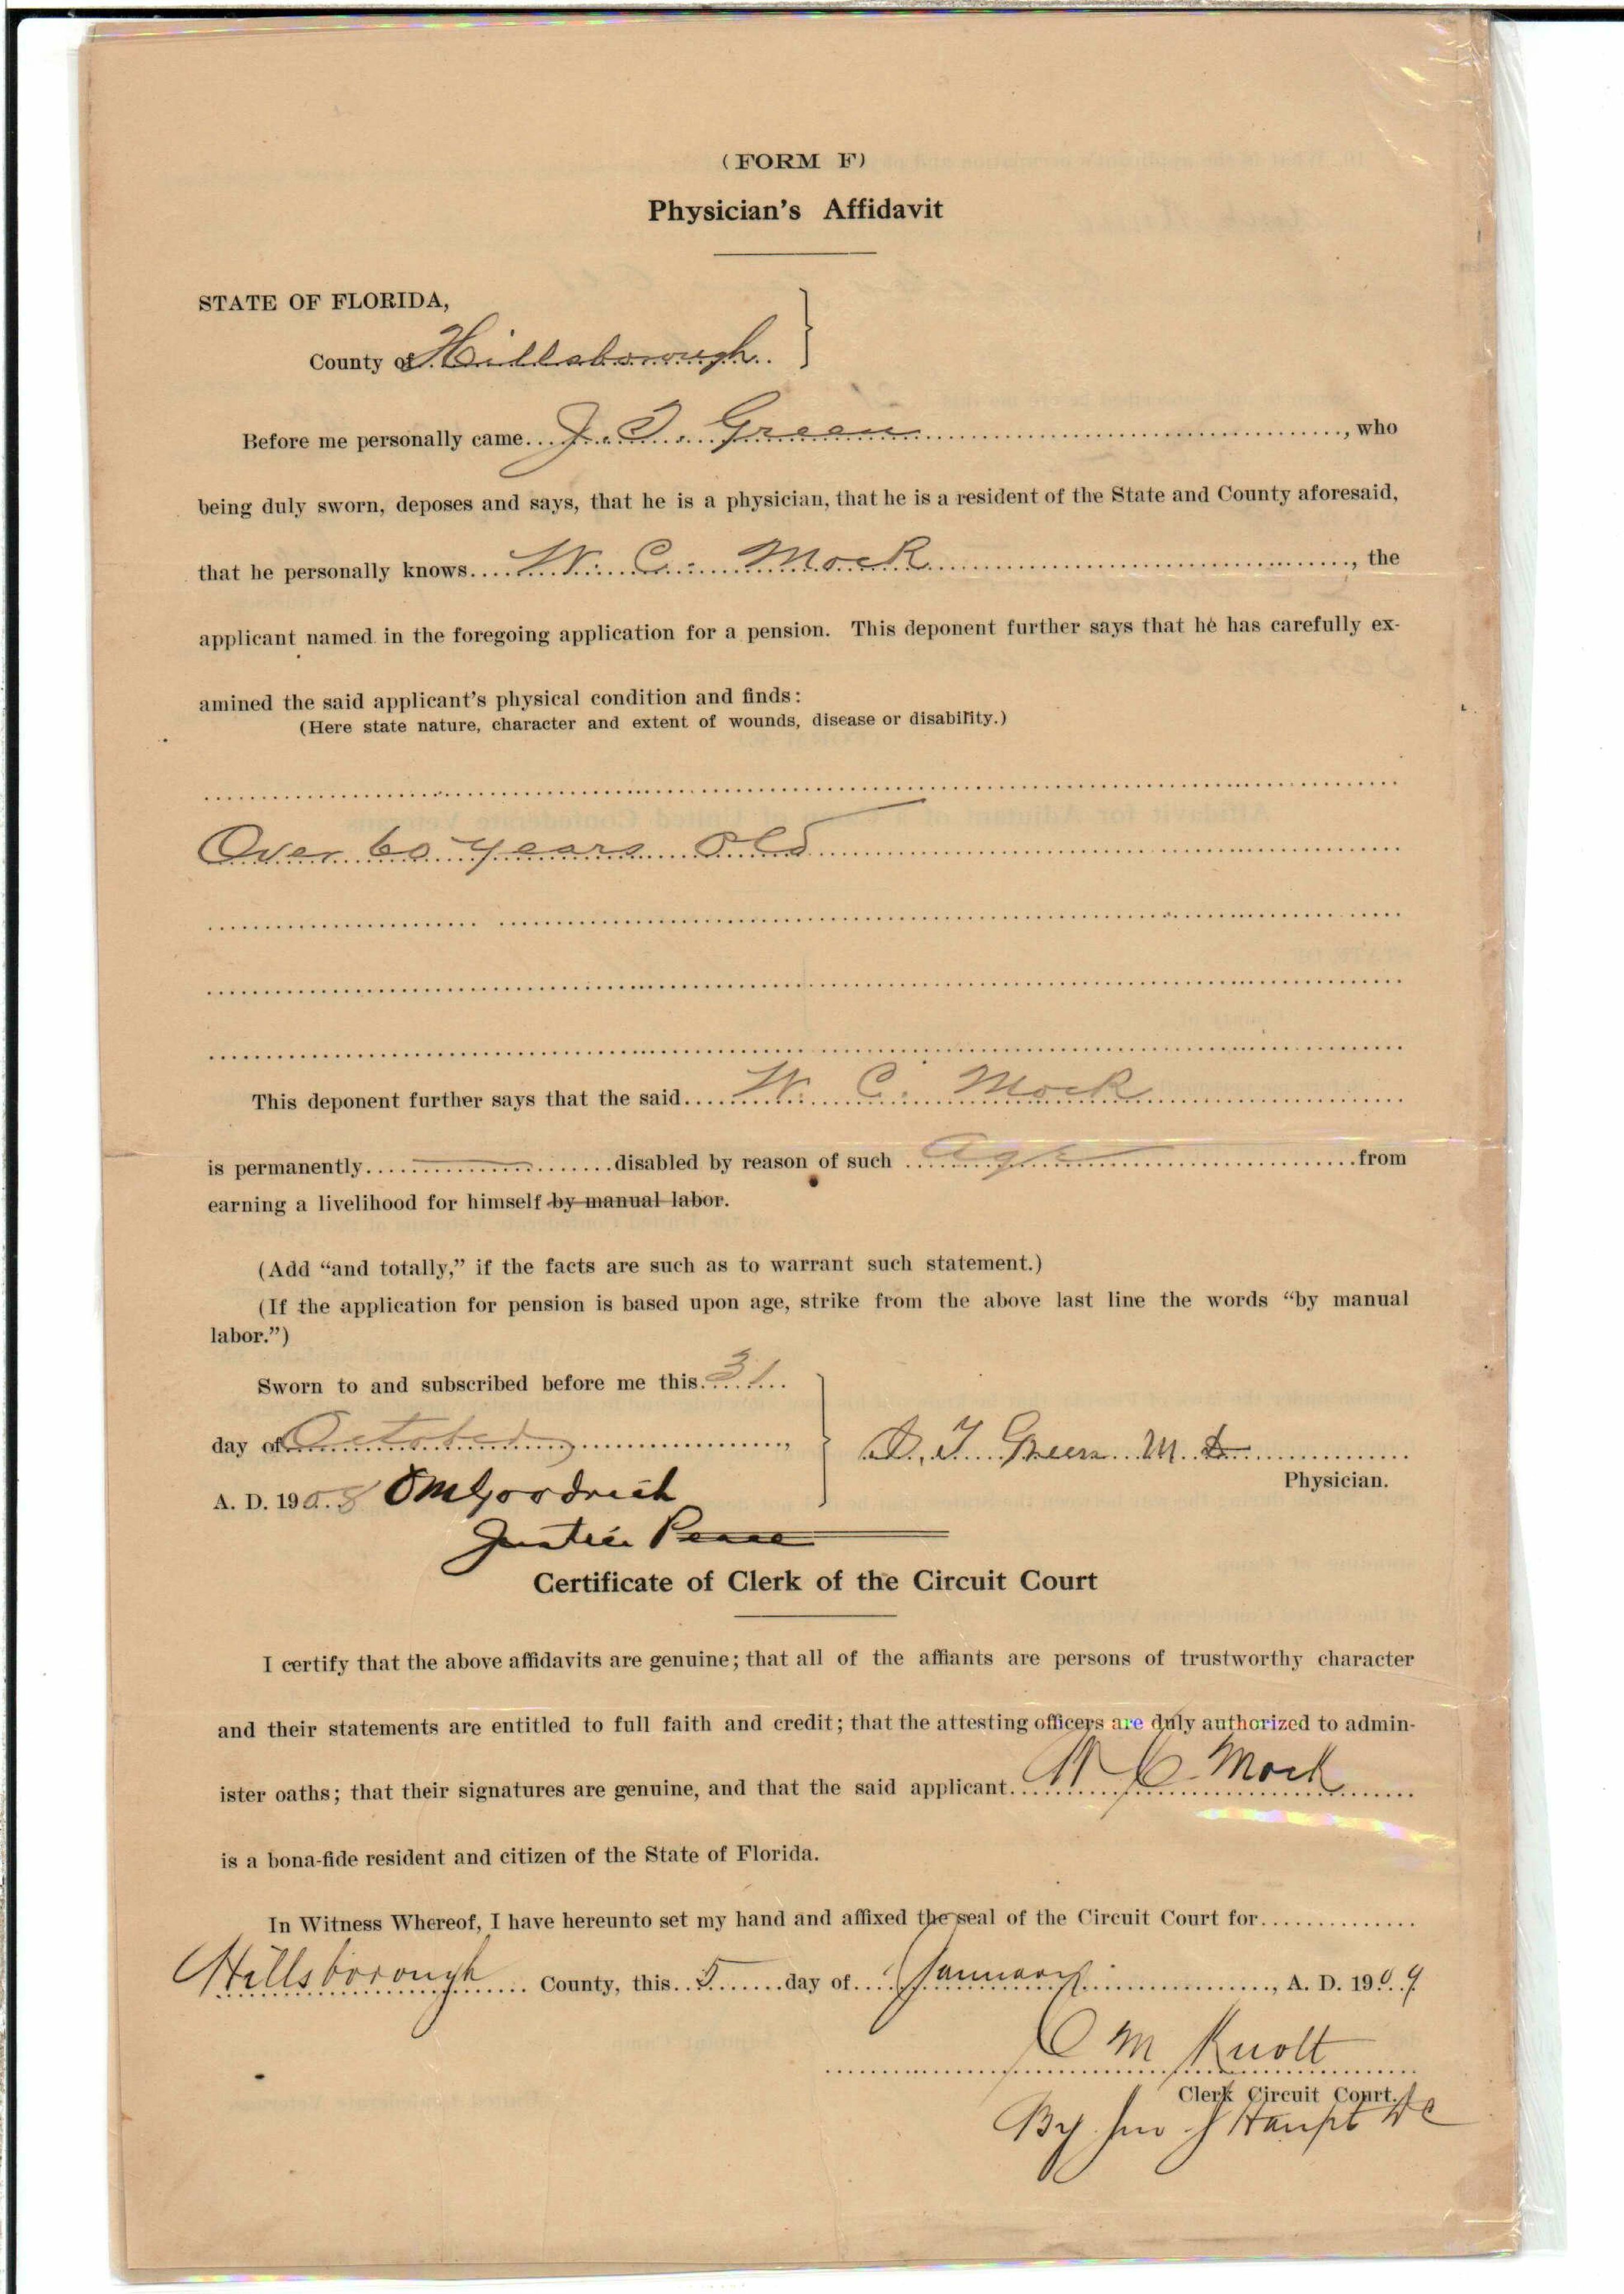 (FORM F)
Physician's Affidavit
STATE OF FLORIDA,
County of Hillsborough
Before me personally came J. T. Green, who
being duly sworn, deposes and says, that he is a physician, that he is a resident of the State and County aforesaid,
that he personally knows W. C. Mock, the
applicant named in the foregoing application for a pension. This deponent further says that he has carefully ex-
amined the said applicant's physical condition and finds:
(Here state nature, character and extent of wounds, disease or disability.)
Over 60 years old
This deponent further says that the said W. C. Mock
is permanently disabled by reason of such age from
earning a livelihood for himself by manual labor.
(Add "and totally," if the facts are such as to warrant such statement.)
(If the application for pension is based upon age, strike from the above last line the words "by manual
labor.")
Sworn to and subscribed before me this 31
day of October
T. Green M. D.
Physician.
A. D. 1908 Goodrich
Justice Peace
Certificate of Clerk of the Circuit Court
I certify that the above affidavits are genuine; that all of the affiants are persons of trustworthy character
and their statements are entitled to full faith and credit; that the attesting officers are duly authorized to admin-
ister oaths; that their signatures are genuine, and that the said applicant W C Mock
is a bona-fide resident and citizen of the State of Florida.
In Witness Whereof, I have hereunto set my hand and affixed the seal of the Circuit Court for
Hillsborough County, this 5 day of January, A. D. 1909
C M Knott
Clerk Circuit Court.
By Jno J Haupt DC